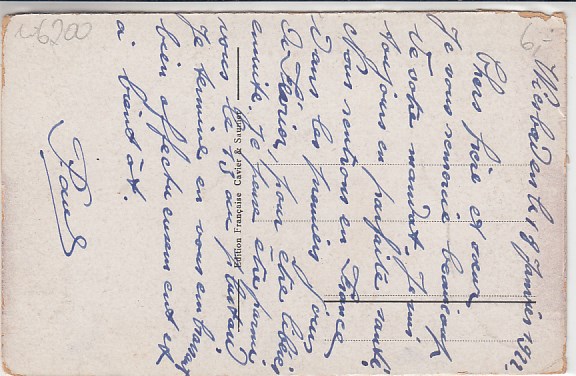 Wiesbaden le 18 Janvier 1922
Chers frère et sœur
Je vous remercie beaucoup
de votre mandat. Je suis
toujours en parfaite santé.
Nous rentrons en France
dans les premiers jours
de Février, pour être libérés
ensuite. Je pense être parmi
vous le 15 au plus tard
Je termine en vous embrassant
bien affectueusement et
à bientôt.
Paul
Edition Française Cavier &
6200
6,-